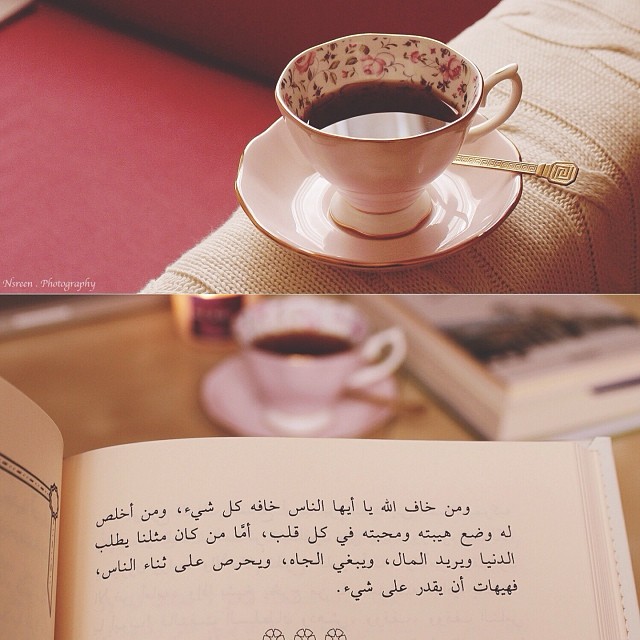 Nsreen . Photography
ومن خاف الله يا أيها الناس خافه كل شيء، ومن أخلص
له وضع هيبته ومحبته في كل قلب، أمَّا من كان مثلنا يطلب
الدنيا ويريد المال، ويبغي الجاه، ويحرص على ثناء الناس،
فهيهات أن يقدر على شيء.